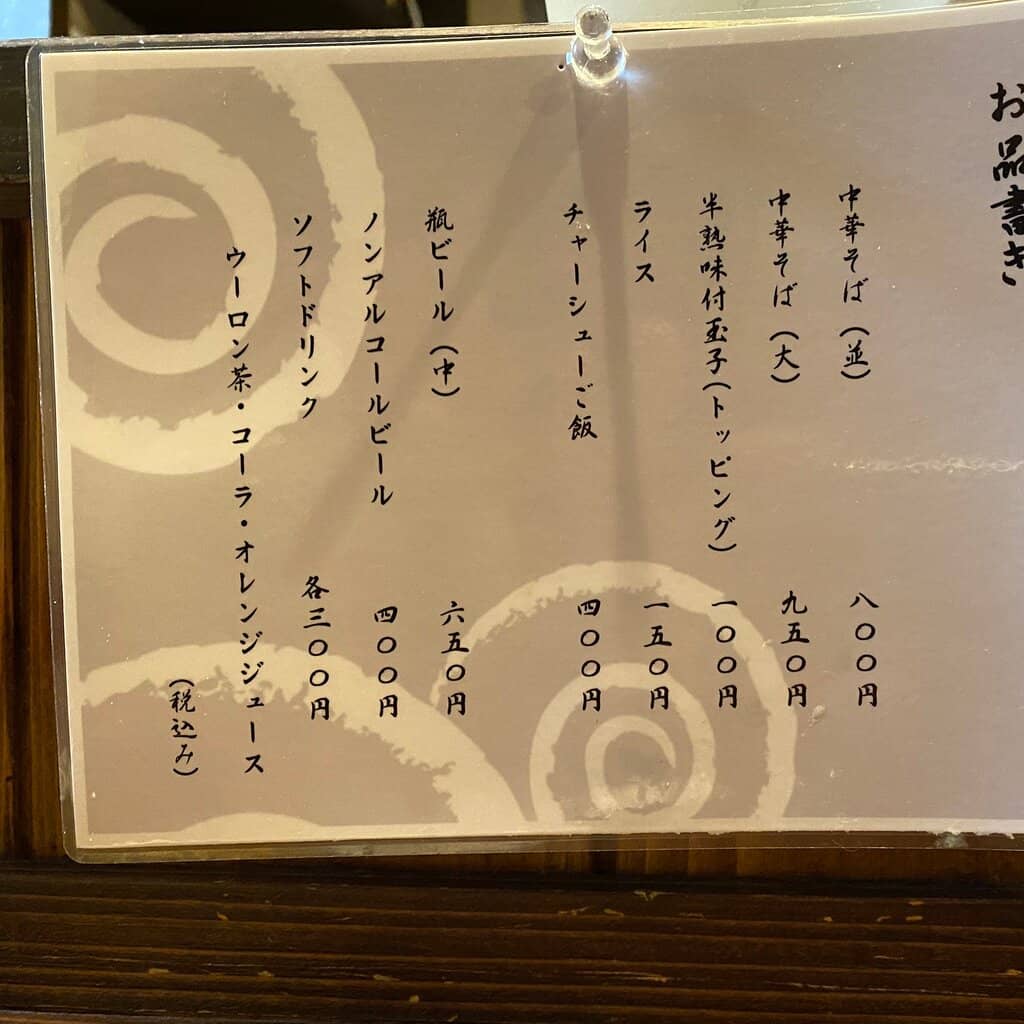 お品書き
中華そば（並） 八〇〇円
中華そば（大） 九五〇円
半熟味付玉子（トッピング） 一〇〇円
ライス 一五〇円
チャーシューご飯 四〇〇円
瓶ビール（中） 六五〇円
ノンアルコールビール 四〇〇円
ソフトドリンク 各三〇〇円
ウーロン茶・コーラ・オレンジジュース
（税込み）